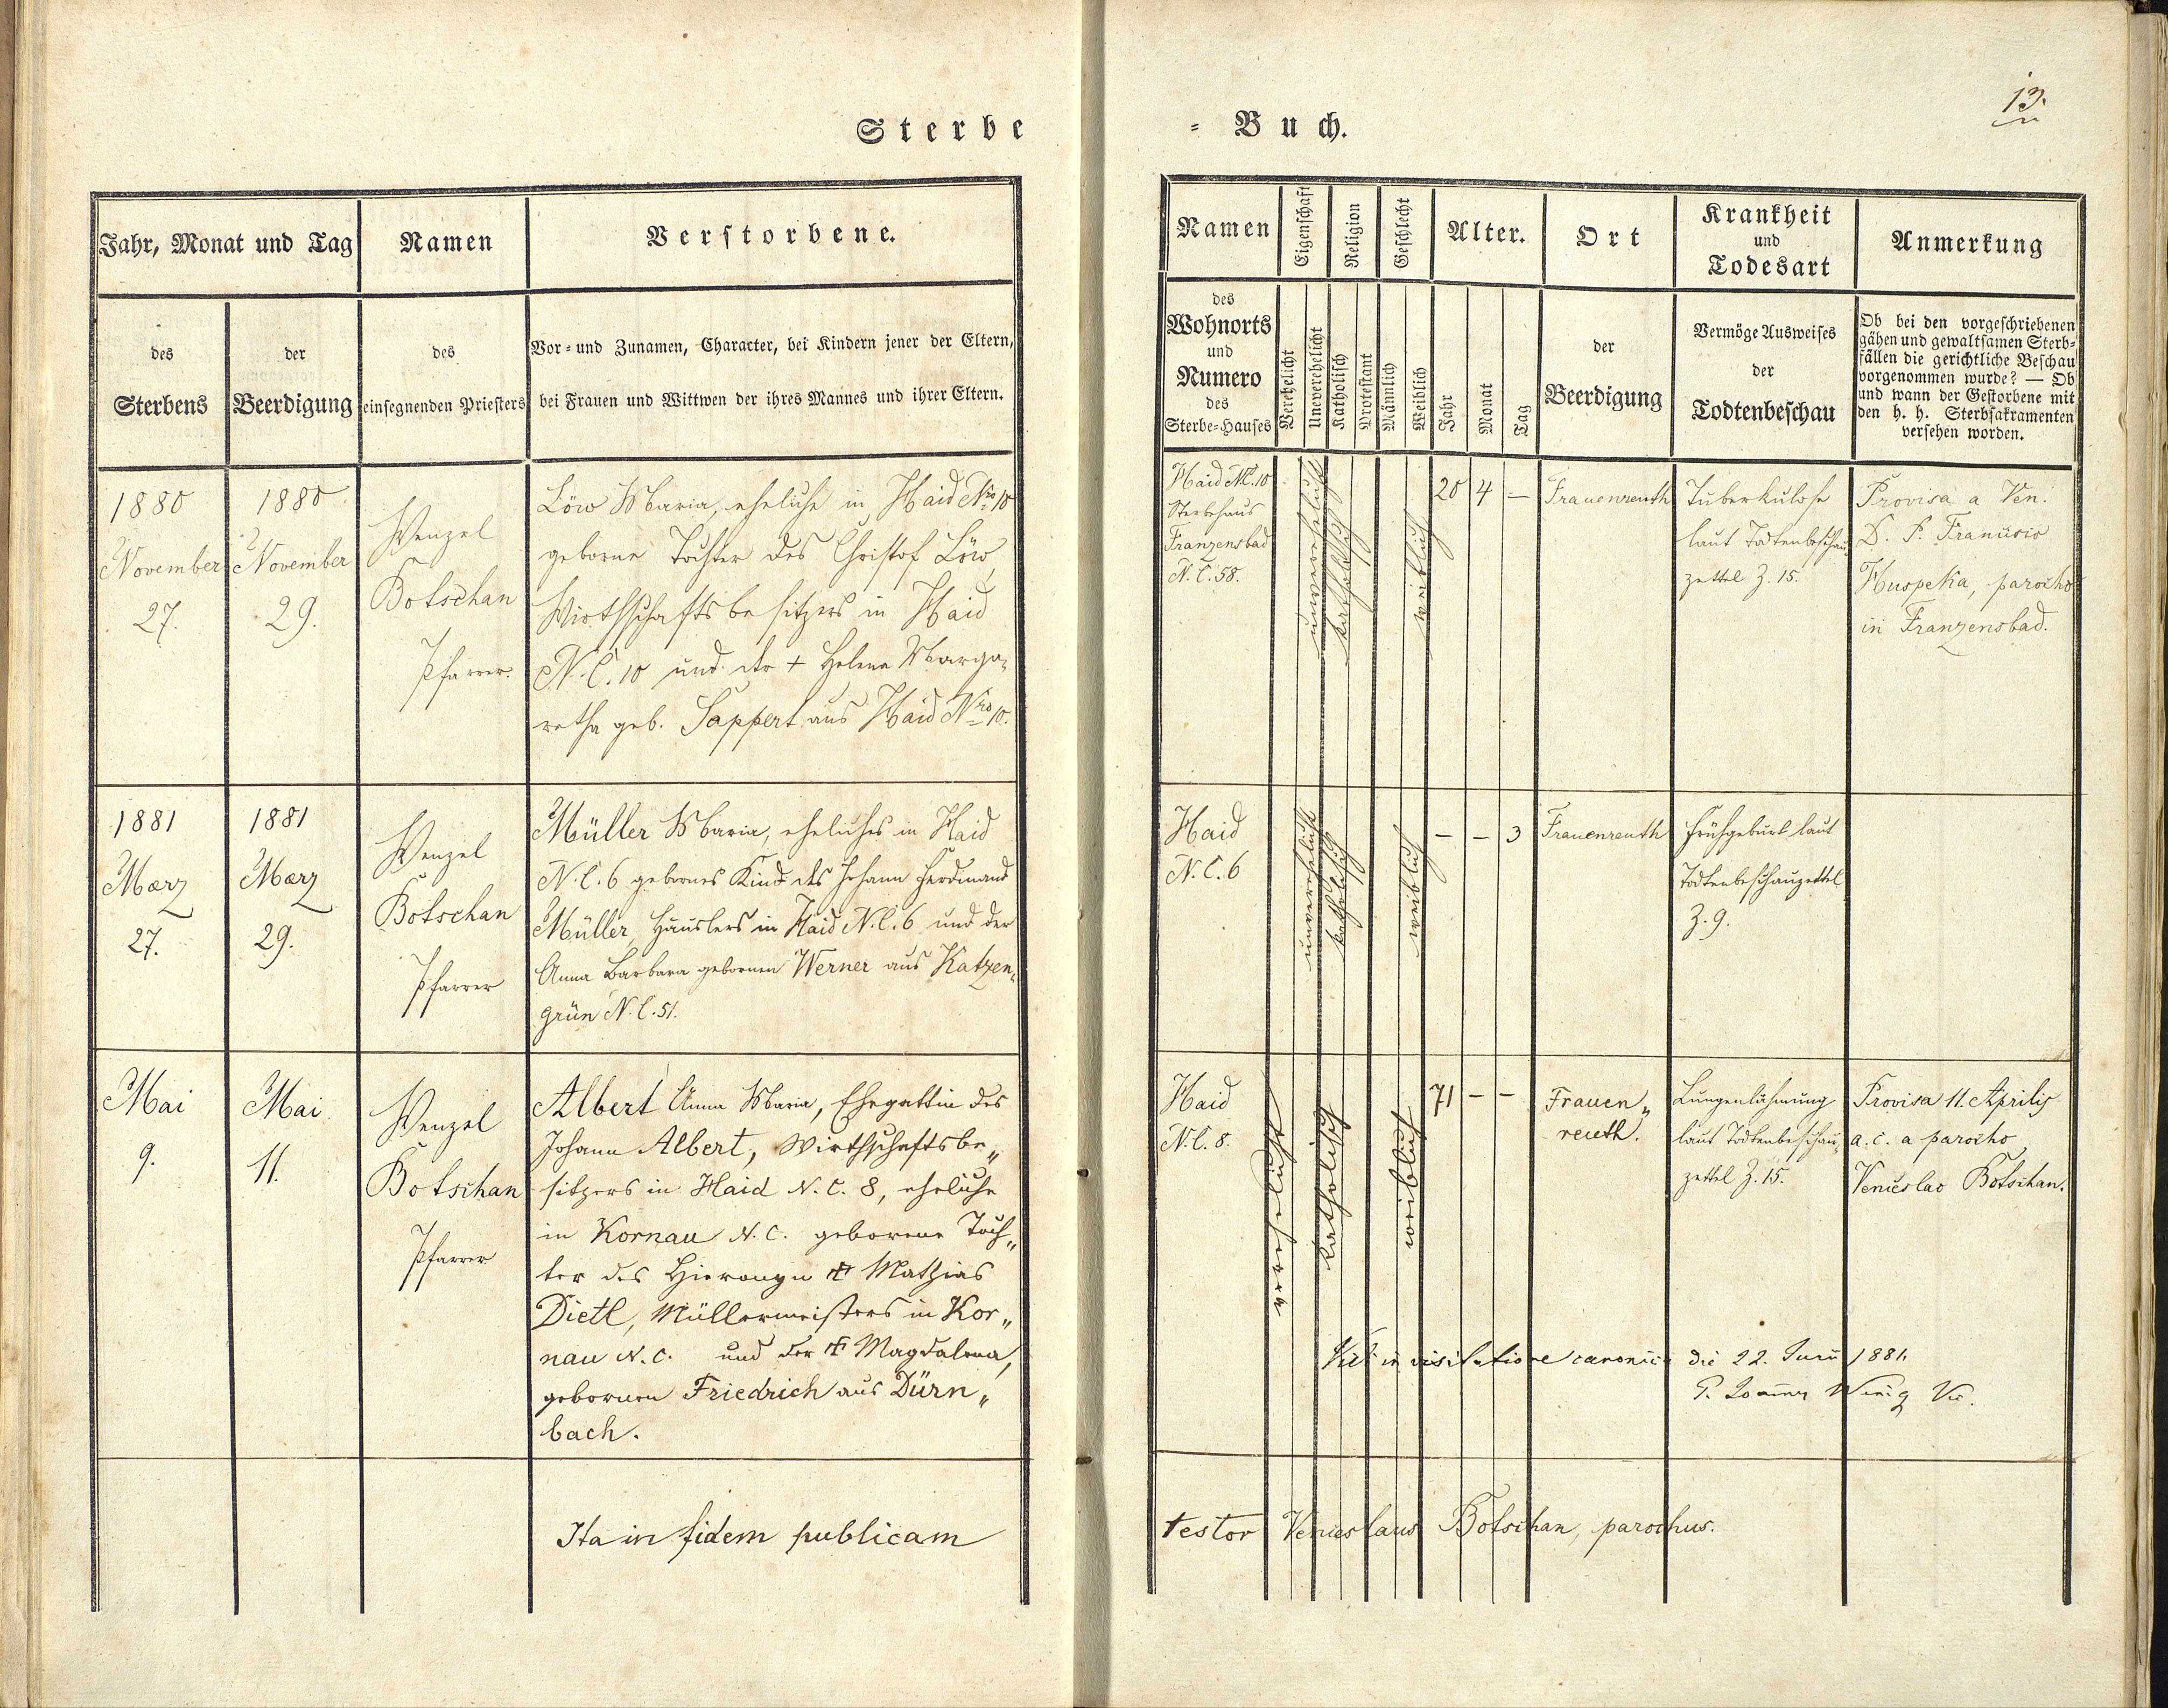 13.
Sterbe
= Buch.
Jahr, Monat und Tag
Namen
Verstorbene.
des
Sterbens
der
Beerdigung
des
einsegnenden Priesters
Vor= und Zunamen, Character, bei Kindern jener der Eltern,
bei Frauen und Wittwen der ihres Mannes und ihrer Eltern.
Namen
Eigenschaft
Religion
Geschlecht
Alter.
Ort
Krankheit
und
Todesart
Anmerkung
des
Wohnorts
und
Numero
des
Sterbe=Hauses
Verehelicht
Unverehelicht
Katholisch
Protestant
Männlich
Weiblich
Jahr
Monat
Tag
der
Beerdigung
Vermöge Ausweises
der
Todtenbeschau
Ob bei den vorgeschriebenen
gähen und gewaltsamen Sterb=
fällen die gerichtliche Beschau
vorgenommen wurde? — Ob
und wann der Gestorbene mit
den h. h. Sterbsakramenten
versehen worden.
1880
November
27.
1880
November
29.
Wenzel
Botschan
Pfarrer.
Löw Maria, eheliche in Haid Nro 10
geborne Tochter des Christof Löw,
Wirthschaftsbesitzers in Haid
N.C. 10 und der + Helena Marga-
retha geb. Sappert aus Haid Nro 10.
Haid Nr. 10
Sterbehaus
Franzensbad
N.C. 58.
unverehelicht
katholisch
weiblich
20 4 —
Frauenreuth
Tuberkulose
laut Todtenbeschau
zettel Z. 15.
Provisa a Ven.
D. P. Francisco
Huspeka, parocho
in Franzensbad.
1881
Maerz
27.
1881
Maerz
29.
Wenzel
Botschan
Pfarrer
Müller Maria, eheliches in Haid
N.C. 6 gebornes Kind des Johann Ferdinand
Müller, Häuslers in Haid N.C. 6 und der
Anna Barbara gebornen Werner aus Katzen-
grün N.C. 51.
Haid
N.C. 6
unverehelicht
katholisch
weiblich
— — 3
Frauenreuth
Frühgeburt laut
Todtenbeschauzettel
Z. 9.
Mai
9.
Mai
11.
Wenzel
Botschan
Pfarrer
Albert Anna Maria, Ehegattin des
Johann Albert, Wirthschaftsbe„
sitzers in Haid N.C. 8, eheliche
in Kornau N.C. geborene Toch„
ter des Hieronym + Mathias
Dietl, Müllermeisters in Kor„
nau N.C. und der + Magdalena,
gebornen Friedrich aus Dürn„
bach.
Haid
N.C. 8.
verehelicht
katholisch
weiblich
71 — —
Frauen„
reuth.
Lungenlähmung
laut Todtenbeschau„
zettel Z. 15.
Provisa 11. Aprilis
a. c. a parocho
Venceslao Botschan.
Vidi in visitatione canonica die 22. Junii 1881.
P.
Ita in fidem publicam
testor Venceslaus Botschan, parochus.